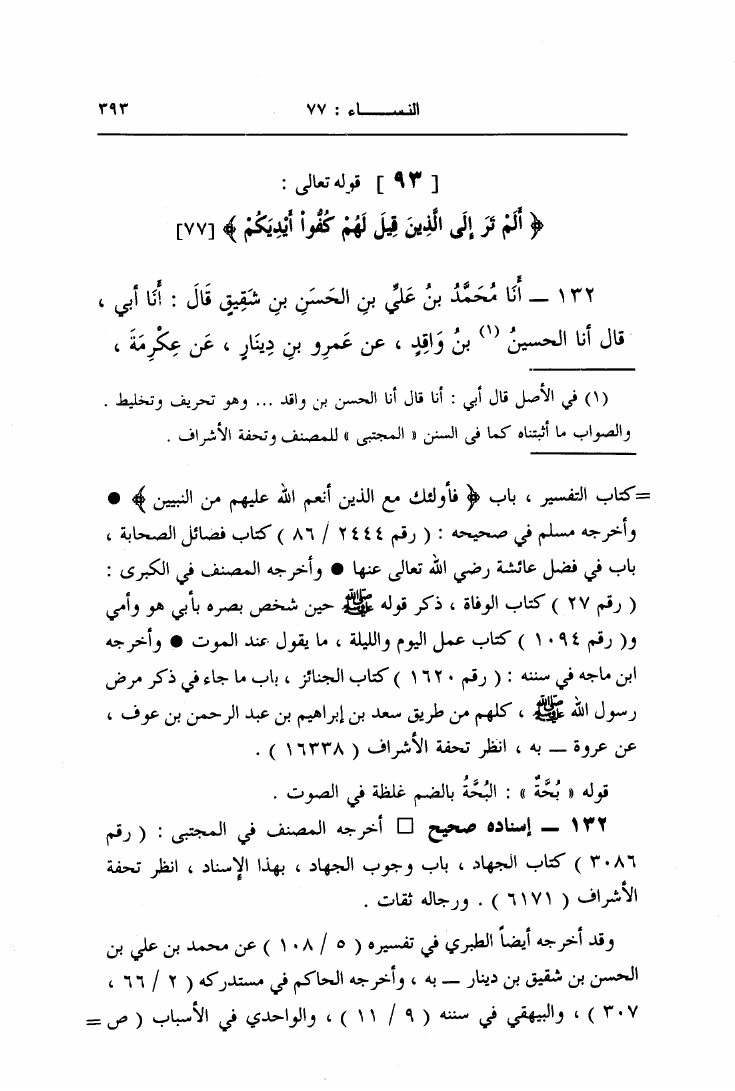 النساء : ٧٧ ٣٩٣
[ ٩٣ ] قوله تعالى :
﴿ أَلَمْ تَرَ إِلَى الَّذِينَ قِيلَ لَهُمْ كُفُّواْ أَيْدِيَكُمْ ﴾ [٧٧]
١٣٢ ــ أَنَا مُحَمَّدُ بنُ عَلِيِّ بنِ الحَسَنِ بنِ شَقِيقٍ قَالَ : أَنَا أبي ،
قال أنا الحسينُ (١) بنُ وَاقِدٍ ، عن عَمرِو بنِ دِينَارٍ ، عَن عِكْرِمَةَ ،
(١) في الأصل قال أبي : أنا قال أنا الحسن بن واقد ... وهو تحريف وتخليط .
والصواب ما أثبتناه كما في السنن « المجتبى » للمصنف وتحفة الأشراف .
=كتاب التفسير ، باب ﴿ فأولئك مع الذين أنعم الله عليهم من النبيين ﴾ ●
وأخرجه مسلم في صحيحه : ( رقم ٢٤٤٤ / ٨٦ ) كتاب فضائل الصحابة ،
باب في فضل عائشة رضي الله تعالى عنها ● وأخرجه المصنف في الكبرى :
( رقم ٢٧ ) كتاب الوفاة ، ذكر قوله ﷺ حين شخص بصره بأبي هو وأمي
و( رقم ١٠٩٤ ) كتاب عمل اليوم والليلة ، ما يقول عند الموت ● وأخرجه
ابن ماجه في سننه : ( رقم ١٦٢٠ ) كتاب الجنائز ، باب ما جاء في ذكر مرض
رسول الله ﷺ ، كلهم من طريق سعد بن إبراهيم بن عبد الرحمن بن عوف ،
عن عروة ــ به ، انظر تحفة الأشراف ( ١٦٣٣٨ ) .
قوله « بُحَّةٌ » : البُحَّةُ بالضم غلظة في الصوت .
١٣٢ ــ إسناده صحيح □ أخرجه المصنف في المجتبى : ( رقم
٣٠٨٦ ) كتاب الجهاد ، باب وجوب الجهاد ، بهذا الإسناد ، انظر تحفة
الأشراف ( ٦١٧١ ) . ورجاله ثقات .
وقد أخرجه أيضاً الطبري في تفسيره ( ٥ / ١٠٨ ) عن محمد بن علي بن
الحسن بن شقيق بن دينار ــ به ، وأخرجه الحاكم في مستدركه ( ٢ / ٦٦ ،
٣٠٧ ) ، والبيهقي في سننه ( ٩ / ١١ ) ، والواحدي في الأسباب ( ص =